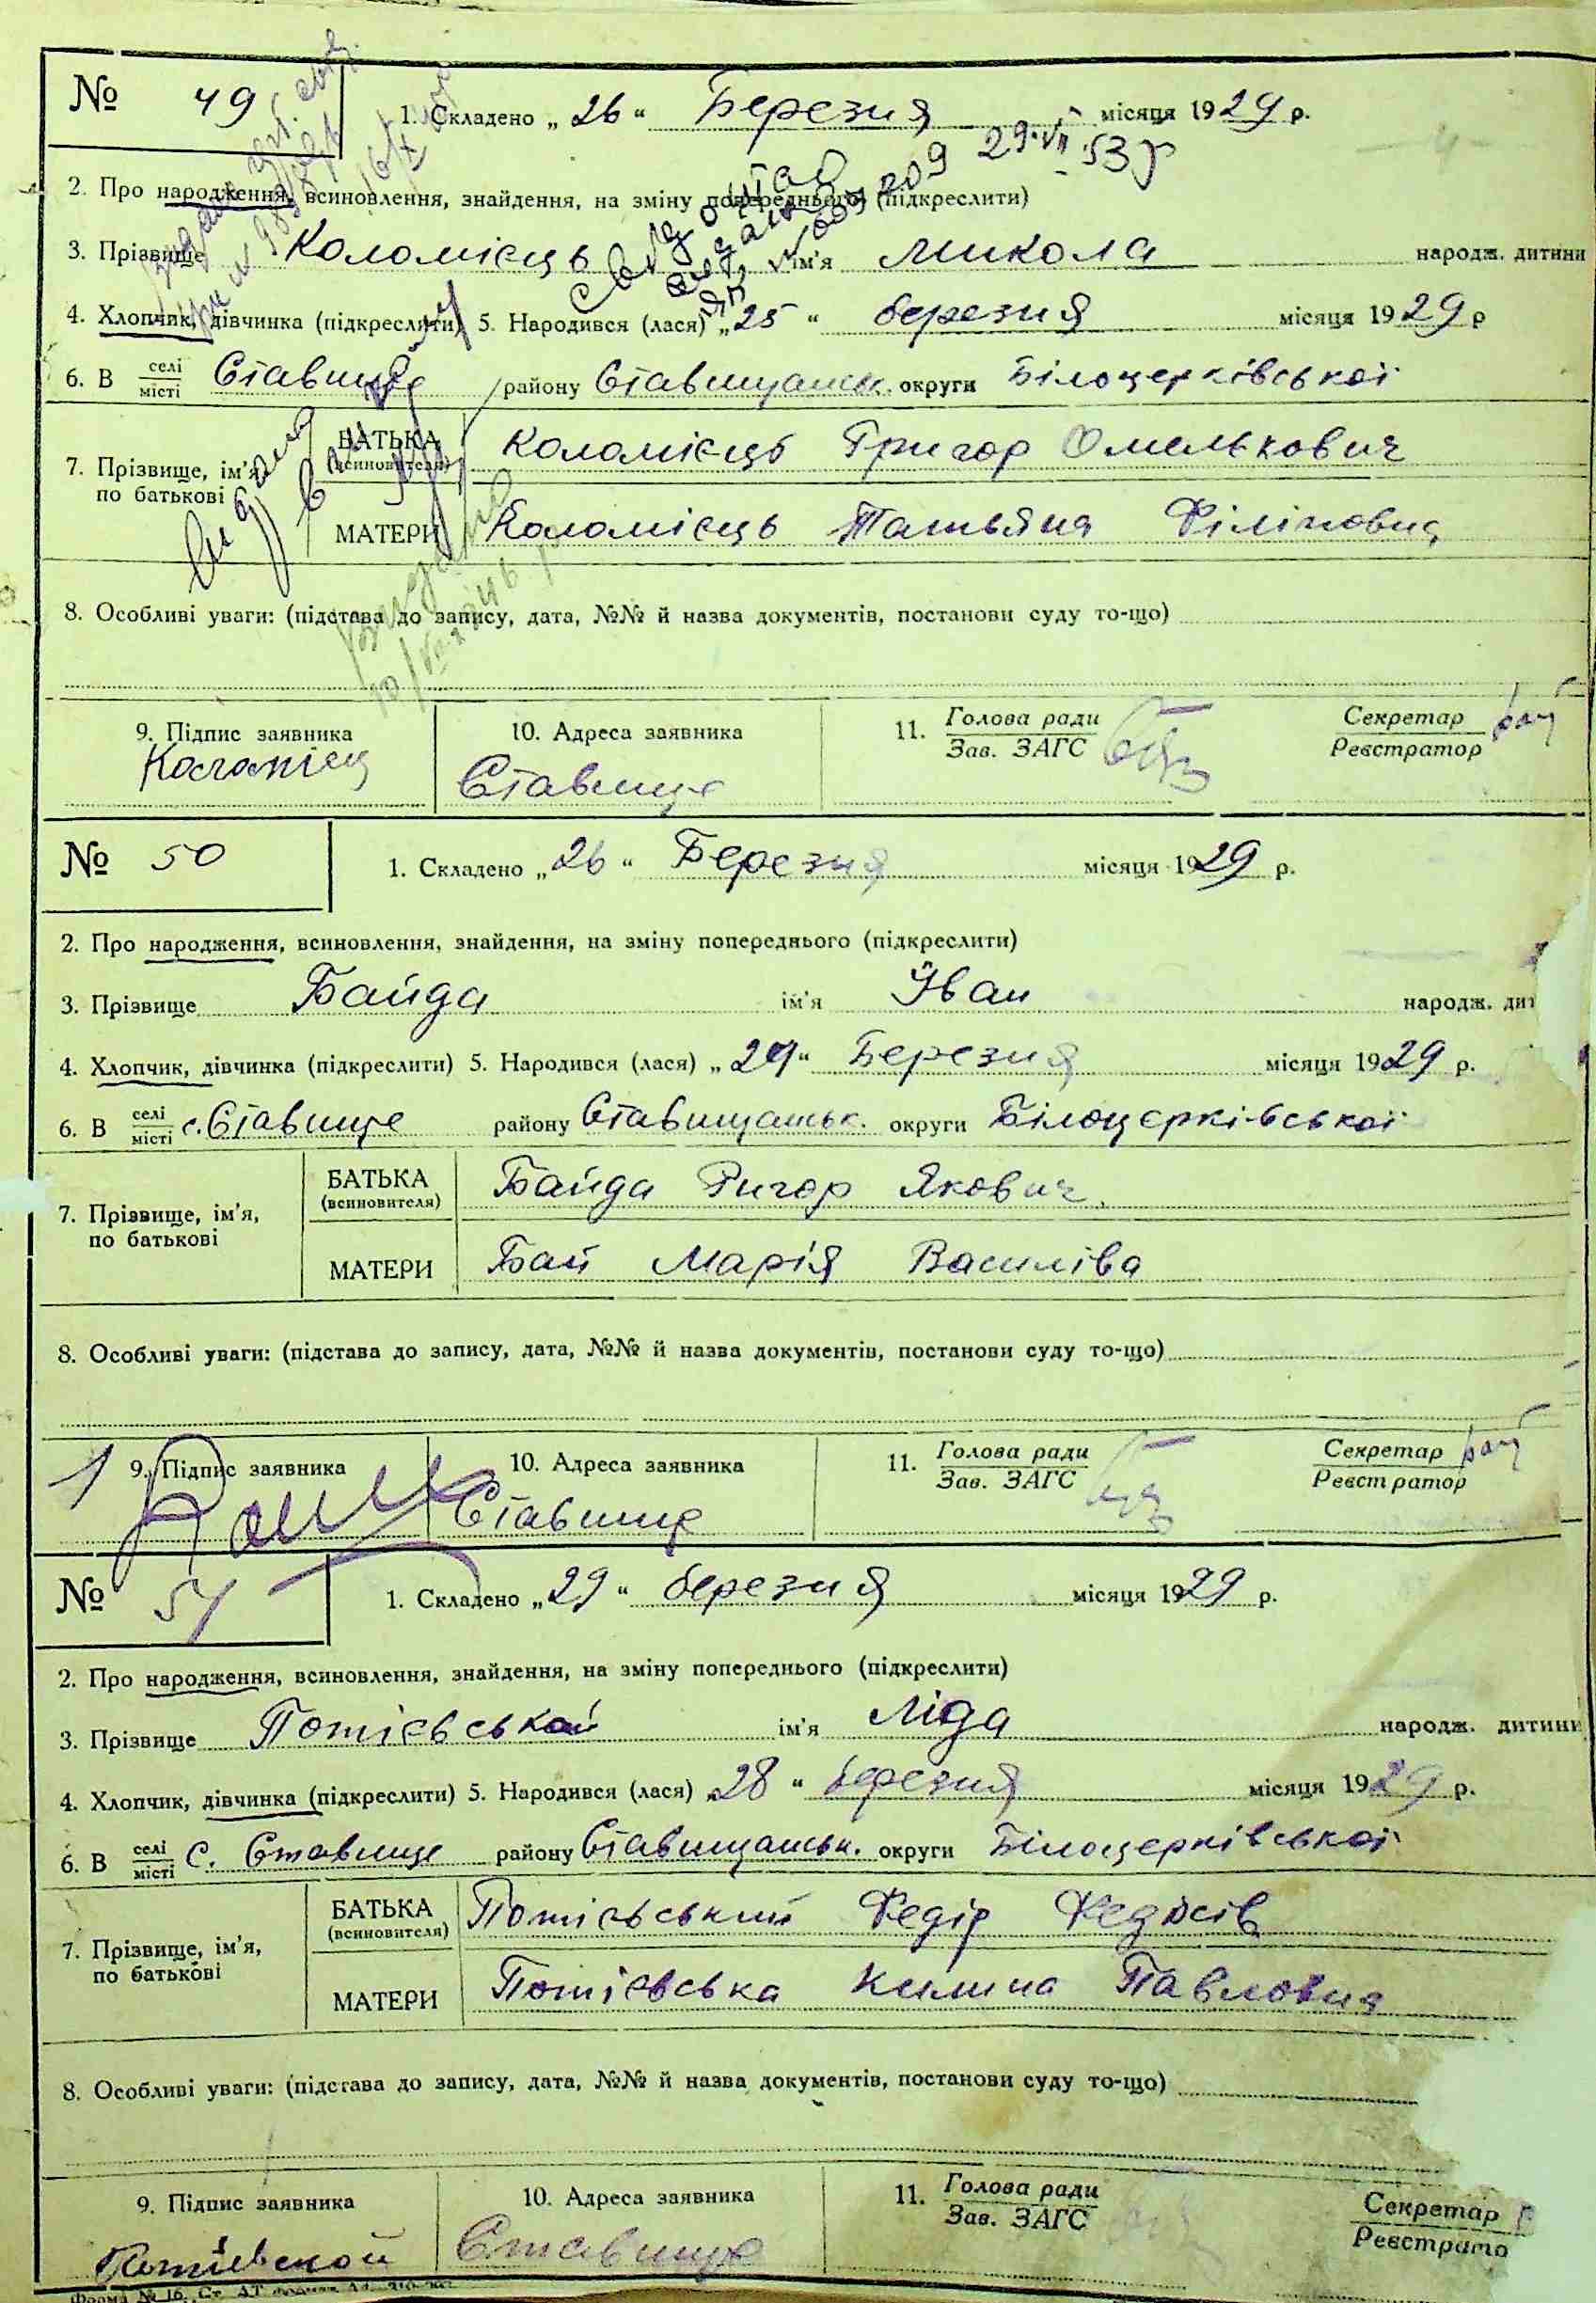 № 49
1. Складено „ 26 “ Березня місяця 1929 р.
2. Про народження, всиновлення, знайдення, на зміну попереднього (підкреслити)
29.VII.53 р
3. Прізвище Коломієць ім'я Микола народж. дитини
4. Хлопчик, дівчинка (підкреслити) 5. Народився (лася) „25 “ березня місяця 1929 р
6. В селі/місті Ставище району Ставищанськ. округи Білоцерківської
7. Прізвище, ім'я, по батькові
БАТЬКА (всиновителя) Коломієць Григор Омелькович
МАТЕРИ Коломієць Татьяна Філіповна
8. Особливі уваги: (підстава до запису, дата, №№ й назва документів, постанови суду то-що)
9. Підпис заявника 10. Адреса заявника 11. Голова ради/Зав. ЗАГС Секретар/Реєстратор
Коломіец Ставище
№ 50
1. Складено „26 “ Березня місяця 1929 р.
2. Про народження, всиновлення, знайдення, на зміну попереднього (підкреслити)
3. Прізвище Байда ім'я Іван народж. дит
4. Хлопчик, дівчинка (підкреслити) 5. Народився (лася) „ “ Березня місяця 1929 р.
6. В селі/місті с. Ставище району Ставищанськ. округи Білоцерківської
7. Прізвище, ім'я, по батькові
БАТЬКА (всиновителя) Байда Ригор Якович
МАТЕРИ Бай Марія Василіва
8. Особливі уваги: (підстава до запису, дата, №№ й назва документів, постанови суду то-що)
9. Підпис заявника 10. Адреса заявника 11. Голова ради/Зав. ЗАГС Секретар/Реєстратор
Ставище
№ 51
1. Складено „29 “ березня місяця 1929 р.
2. Про народження, всиновлення, знайдення, на зміну попереднього (підкреслити)
3. Прізвище Потієвськай ім'я Ліда народж. дитини
4. Хлопчик, дівчинка (підкреслити) 5. Народився (лася) „28 “ березня місяця 1929 р.
6. В селі/місті С. Ставище району Ставищанськ. округи Білоцерківської
7. Прізвище, ім'я, по батькові
БАТЬКА (всиновителя) Потієвський Федір Федосів
МАТЕРИ Потієвська Килина Павловна
8. Особливі уваги: (підстава до запису, дата, №№ й назва документів, постанови суду то-що)
9. Підпис заявника 10. Адреса заявника 11. Голова ради/Зав. ЗАГС Секретар/Реєстрато
Потіевской Ставище
Форма № 16.